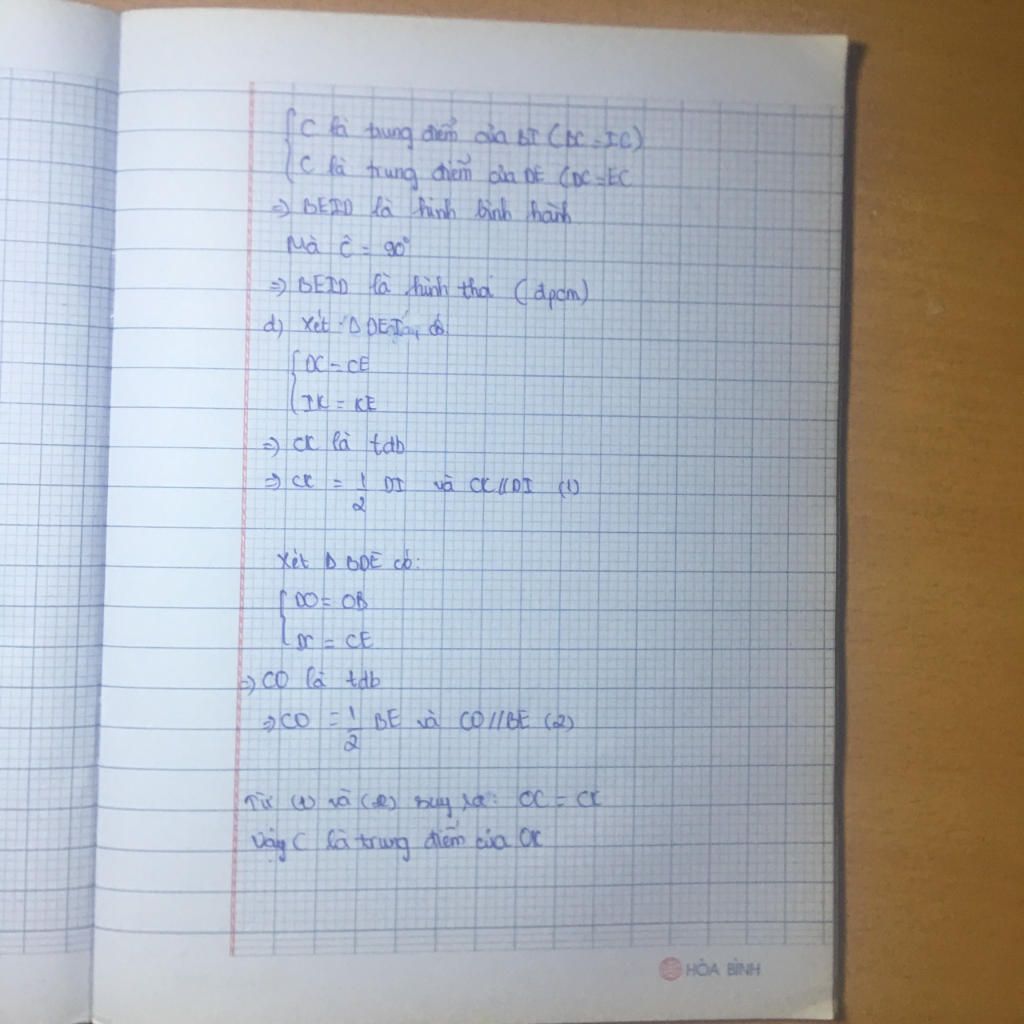 C là trung điểm của BI (BC = IC)
C là trung điểm của DE (DC = EC
=> BEID là hình bình hành
Mà Ĉ = 90°
=> BEID là hình thoi (đpcm)
d) Xét Δ DEI, có
DC = CE
IK = KE
=> CK là tđb
=> CK = 1/2 DI và CK // DI (1)
Xét Δ BDE có:
DO = OB
DC = CE
=> CO là tđb
=> CO = 1/2 BE và CO // BE (2)
Từ (1) và (2) suy ra: OC = CK
Vậy C là trung điểm của OK
HÒA BÌNH